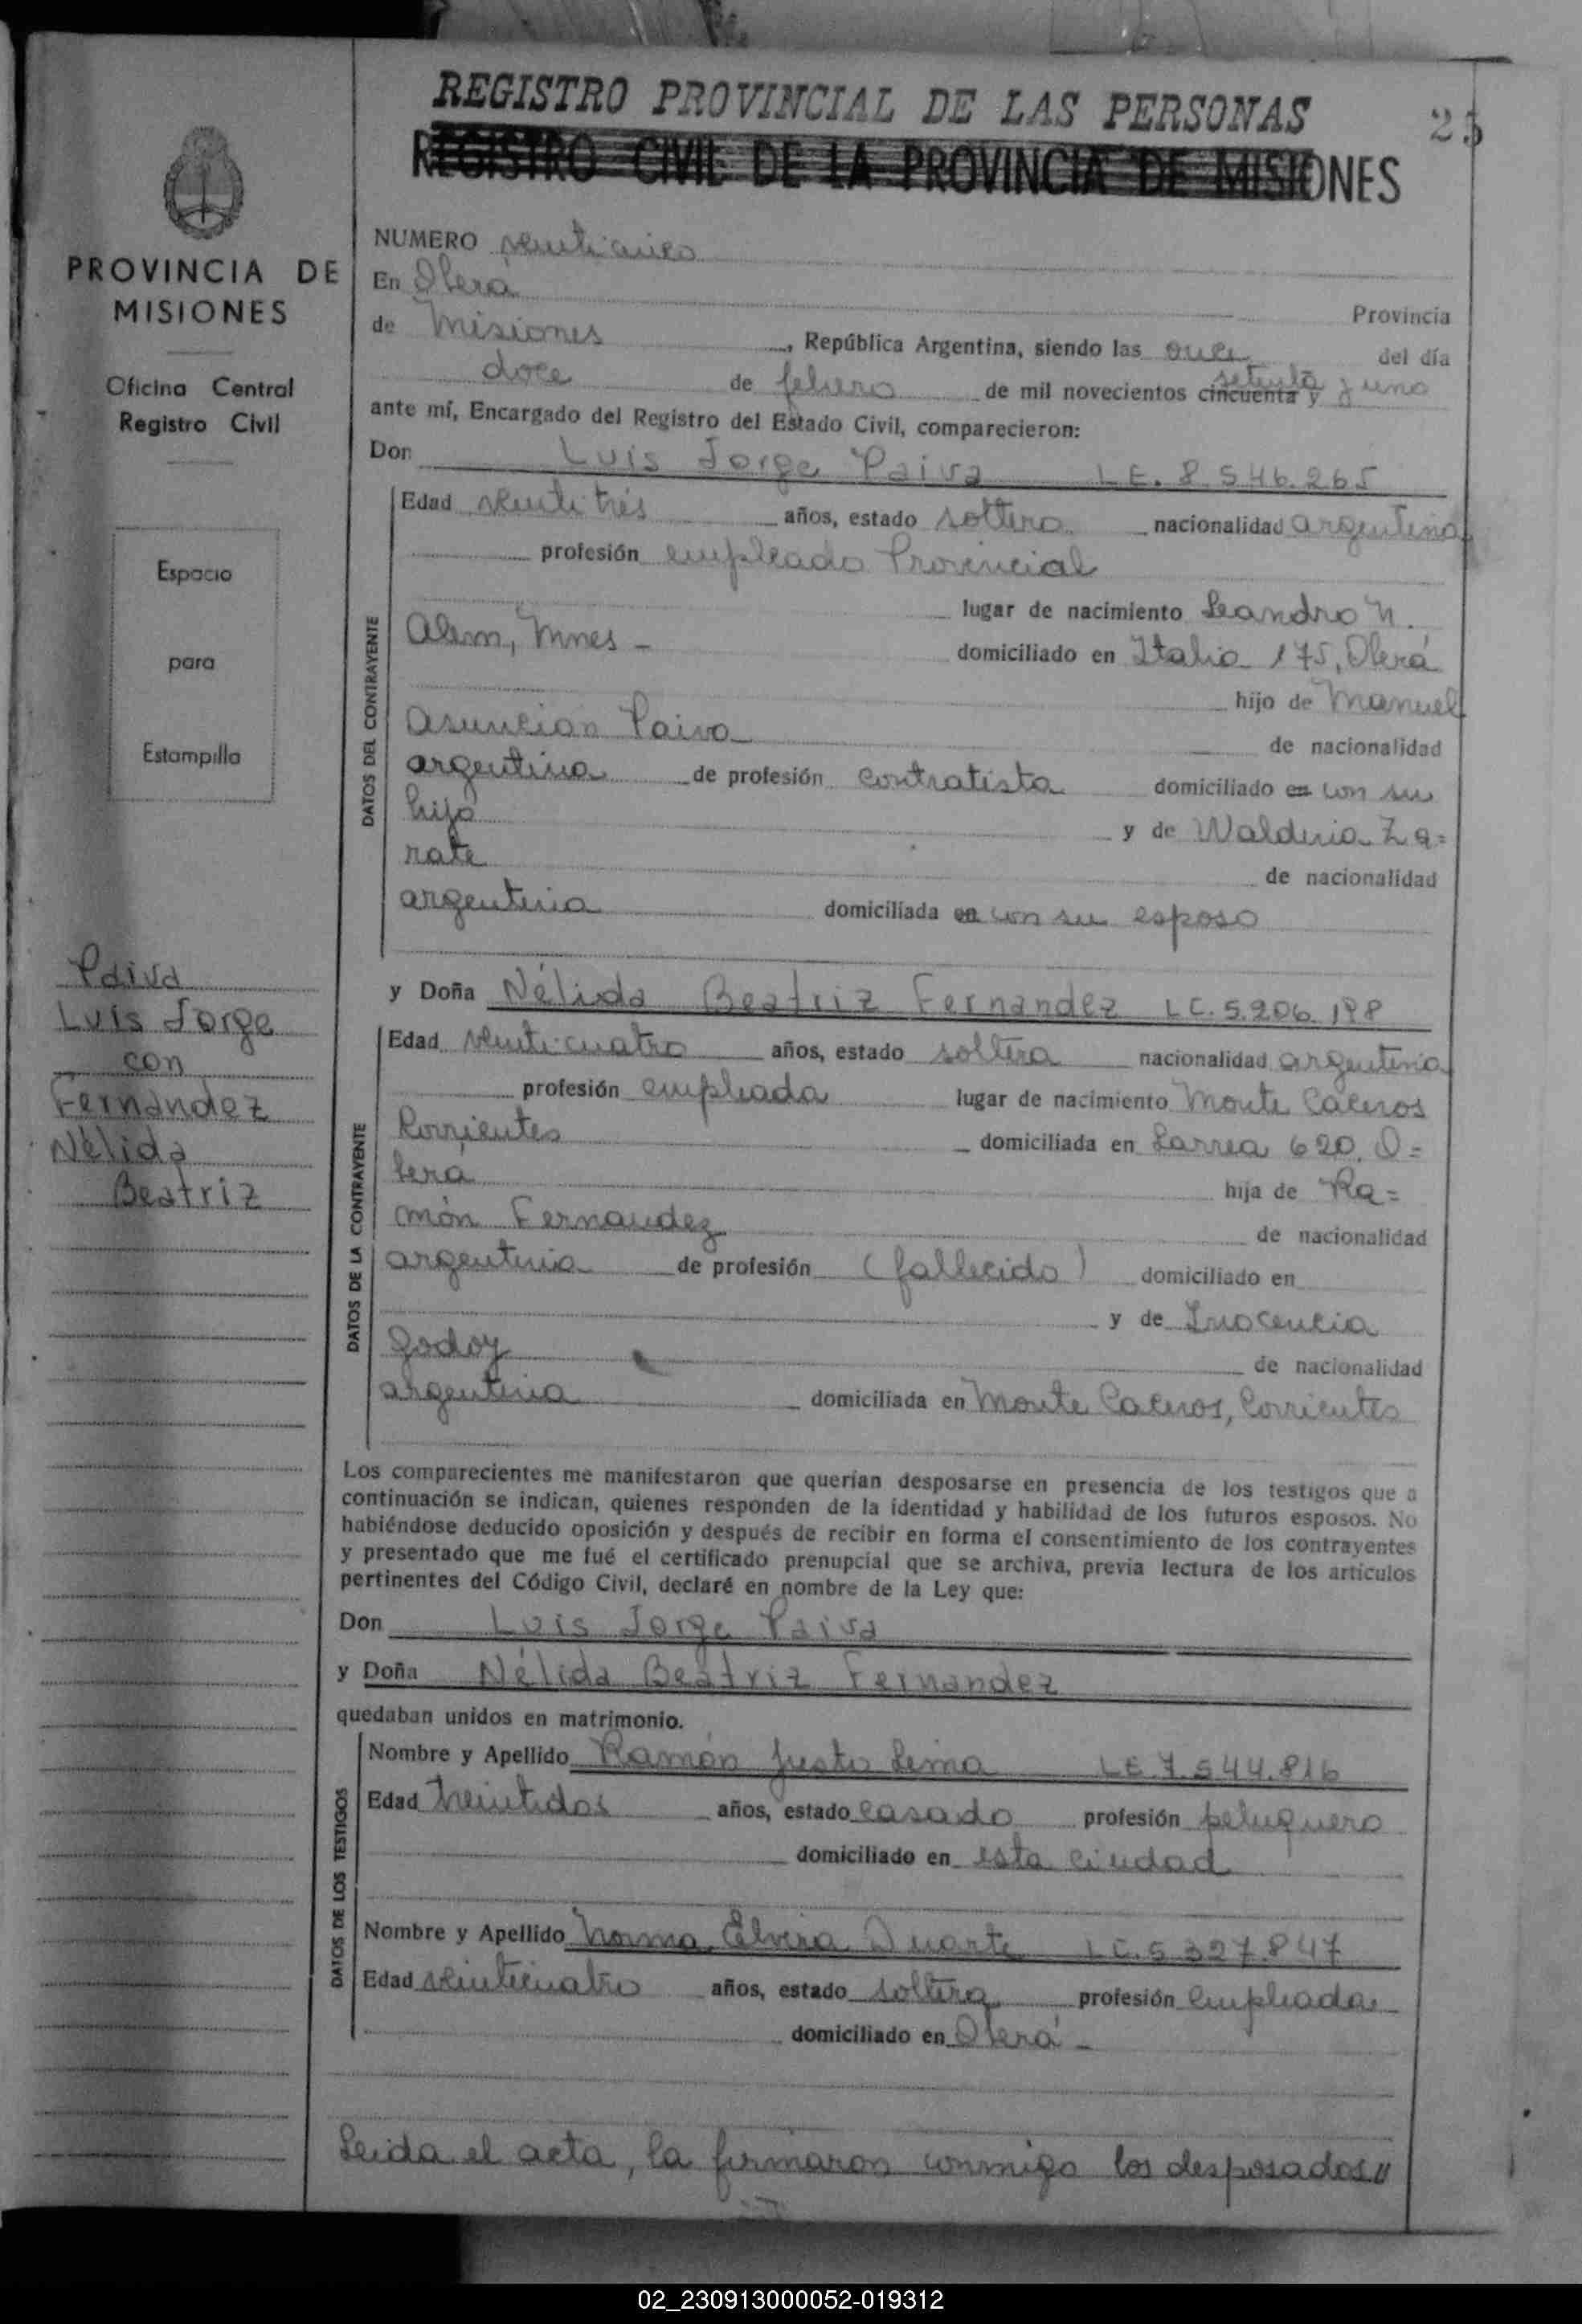 REGISTRO PROVINCIAL DE LAS PERSONAS
25
REGISTRO CIVIL DE LA PROVINCIA DE MISIONES
PROVINCIA DE
MISIONES
Oficina Central
Registro Civil
Espacio
para
Estampilla
Paiva
Luis Jorge
con
Fernandez
Nélida
Beatriz
NUMERO veinticinco
En Oberá
Provincia
de Misiones, República Argentina, siendo las once del día
doce de febrero de mil novecientos cincuenta y setenta y uno
ante mí, Encargado del Registro del Estado Civil, comparecieron:
Don Luis Jorge Paiva L E. 8.546.265
DATOS DEL CONTRAYENTE
Edad veintitrés años, estado soltero nacionalidad argentina
profesión empleado Provincial
lugar de nacimiento Leandro N.
Alem, Mnes - domiciliado en Italia 175, Oberá
hijo de Manuel
Asuncion Paiva de nacionalidad
argentina de profesión contratista domiciliado en con su
hijo y de Walduia Za=
rate de nacionalidad
argentina domiciliada en con su esposo
y Doña Nélida Beatriz Fernandez L C. 5.206.198
DATOS DE LA CONTRAYENTE
Edad veinticuatro años, estado soltera nacionalidad argentina
profesión empleada lugar de nacimiento Monte Caseros
Corrientes domiciliada en Larrea 620. O=
berá hija de Ra=
món Fernandez de nacionalidad
argentina de profesión (fallecido) domiciliado en
y de Inocencia
Godoy de nacionalidad
argentina domiciliada en Monte Caseros, Corrientes
Los comparecientes me manifestaron que querían desposarse en presencia de los testigos que a
continuación se indican, quienes responden de la identidad y habilidad de los futuros esposos. No
habiéndose deducido oposición y después de recibir en forma el consentimiento de los contrayentes
y presentado que me fué el certificado prenupcial que se archiva, previa lectura de los artículos
pertinentes del Código Civil, declaré en nombre de la Ley que:
Don Luis Jorge Paiva
y Doña Nélida Beatriz Fernandez
quedaban unidos en matrimonio.
DATOS DE LOS TESTIGOS
Nombre y Apellido Ramón Justo Leina L E 7.544.816
Edad treintidos años, estado casado profesión peluquero
domiciliado en esta ciudad
Nombre y Apellido Norma Elvira Duarte L C. 5.327.847
Edad veinticuatro años, estado soltera profesión empleada
domiciliado en Oberá -
Leida el acta, la firmaron conmigo los desposados//
02_230913000052-019312